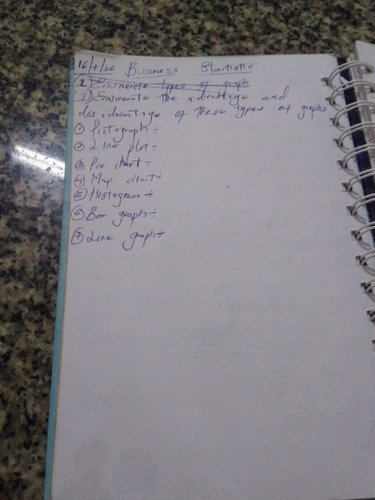 16/7/20 Business Startistic
2. Enumerate types of graph
1) Enumerate the advantage and
disadvantage of these types of graphs
① Pictograph:-
② Line plot:-
③ Pie chart:-
④ Map chart:-
⑤ Histogram:-
⑥ Bar graph:-
⑦ Line graph:-